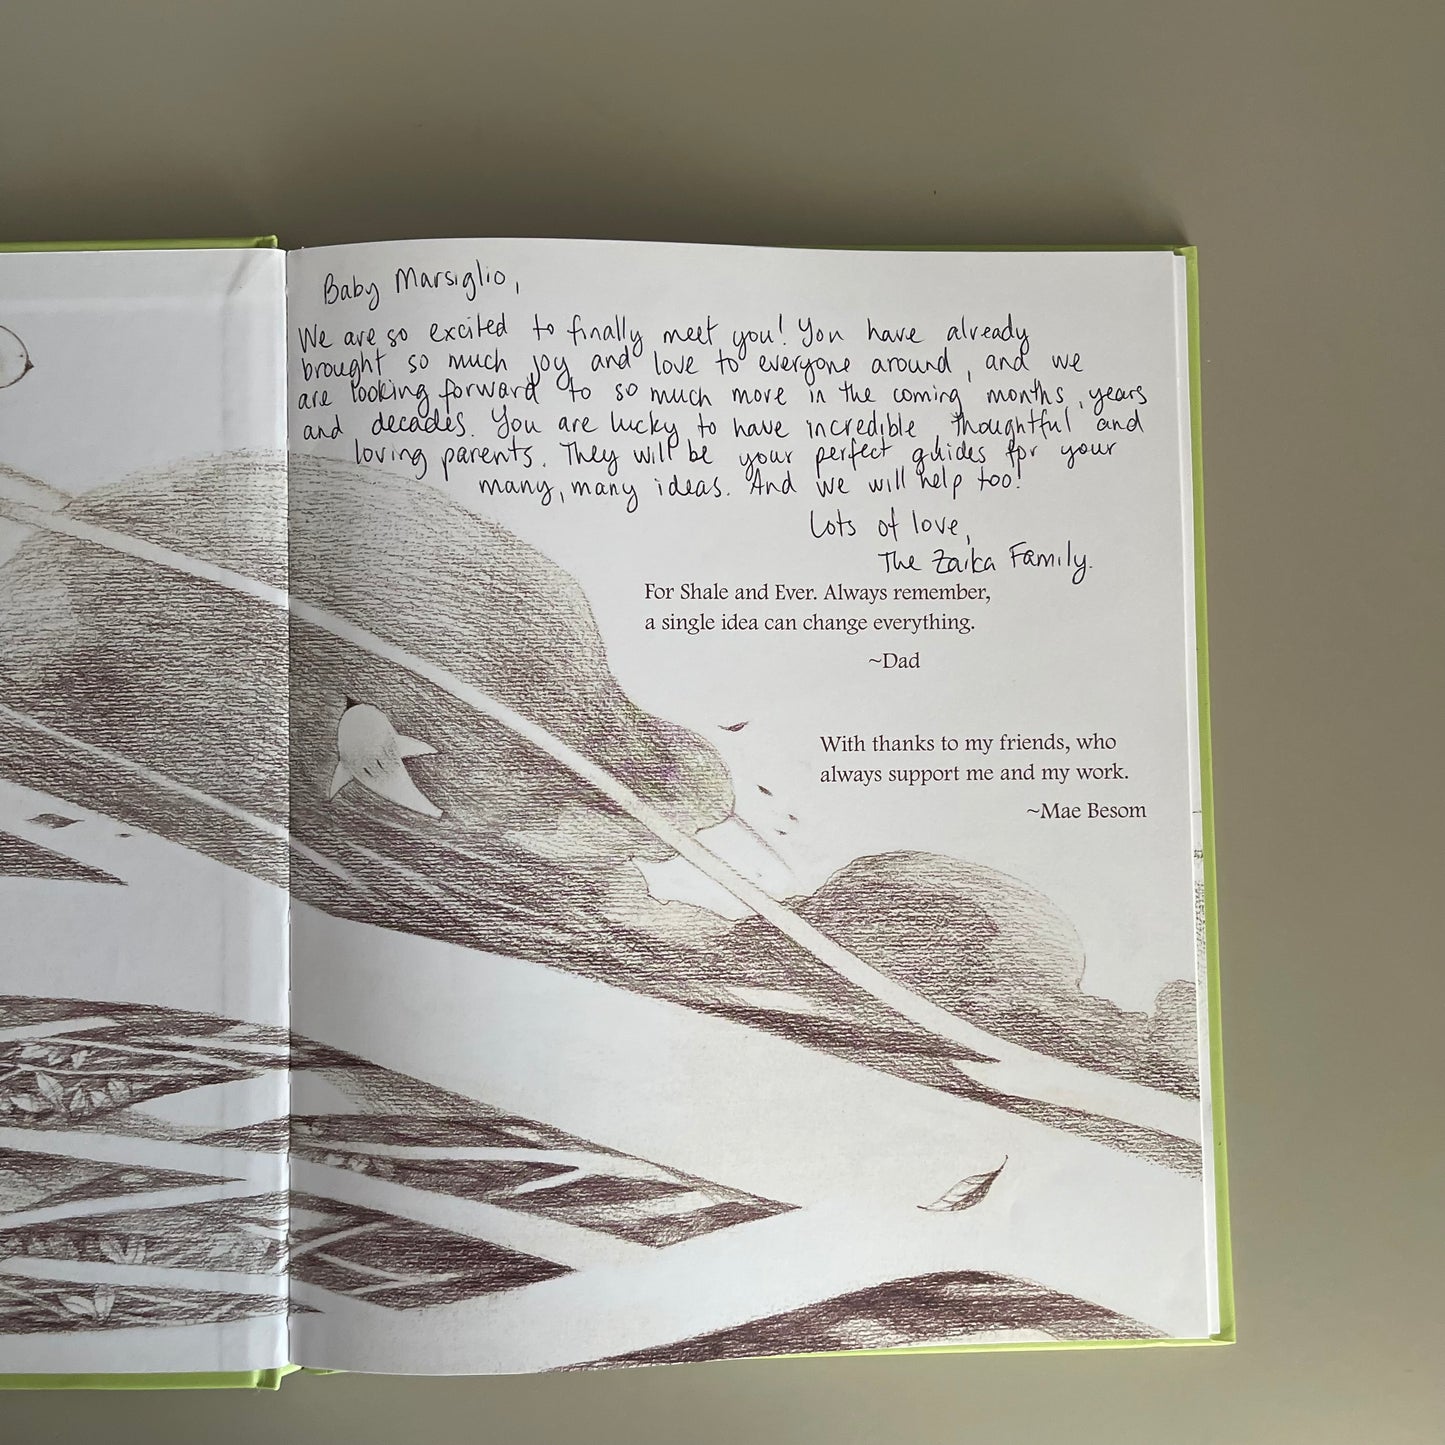 Baby Marsiglio,
We are so excited to finally meet you! You have already
brought so much joy and love to everyone around, and we
are looking forward to so much more in the coming months, years
and decades. You are lucky to have incredible thoughtful and
loving parents. They will be your perfect guides for your
many, many ideas. And we will help too!
Lots of love,
The Zaika Family.
For Shale and Ever. Always remember,
a single idea can change everything.
~Dad
With thanks to my friends, who
always support me and my work.
~Mae Besom